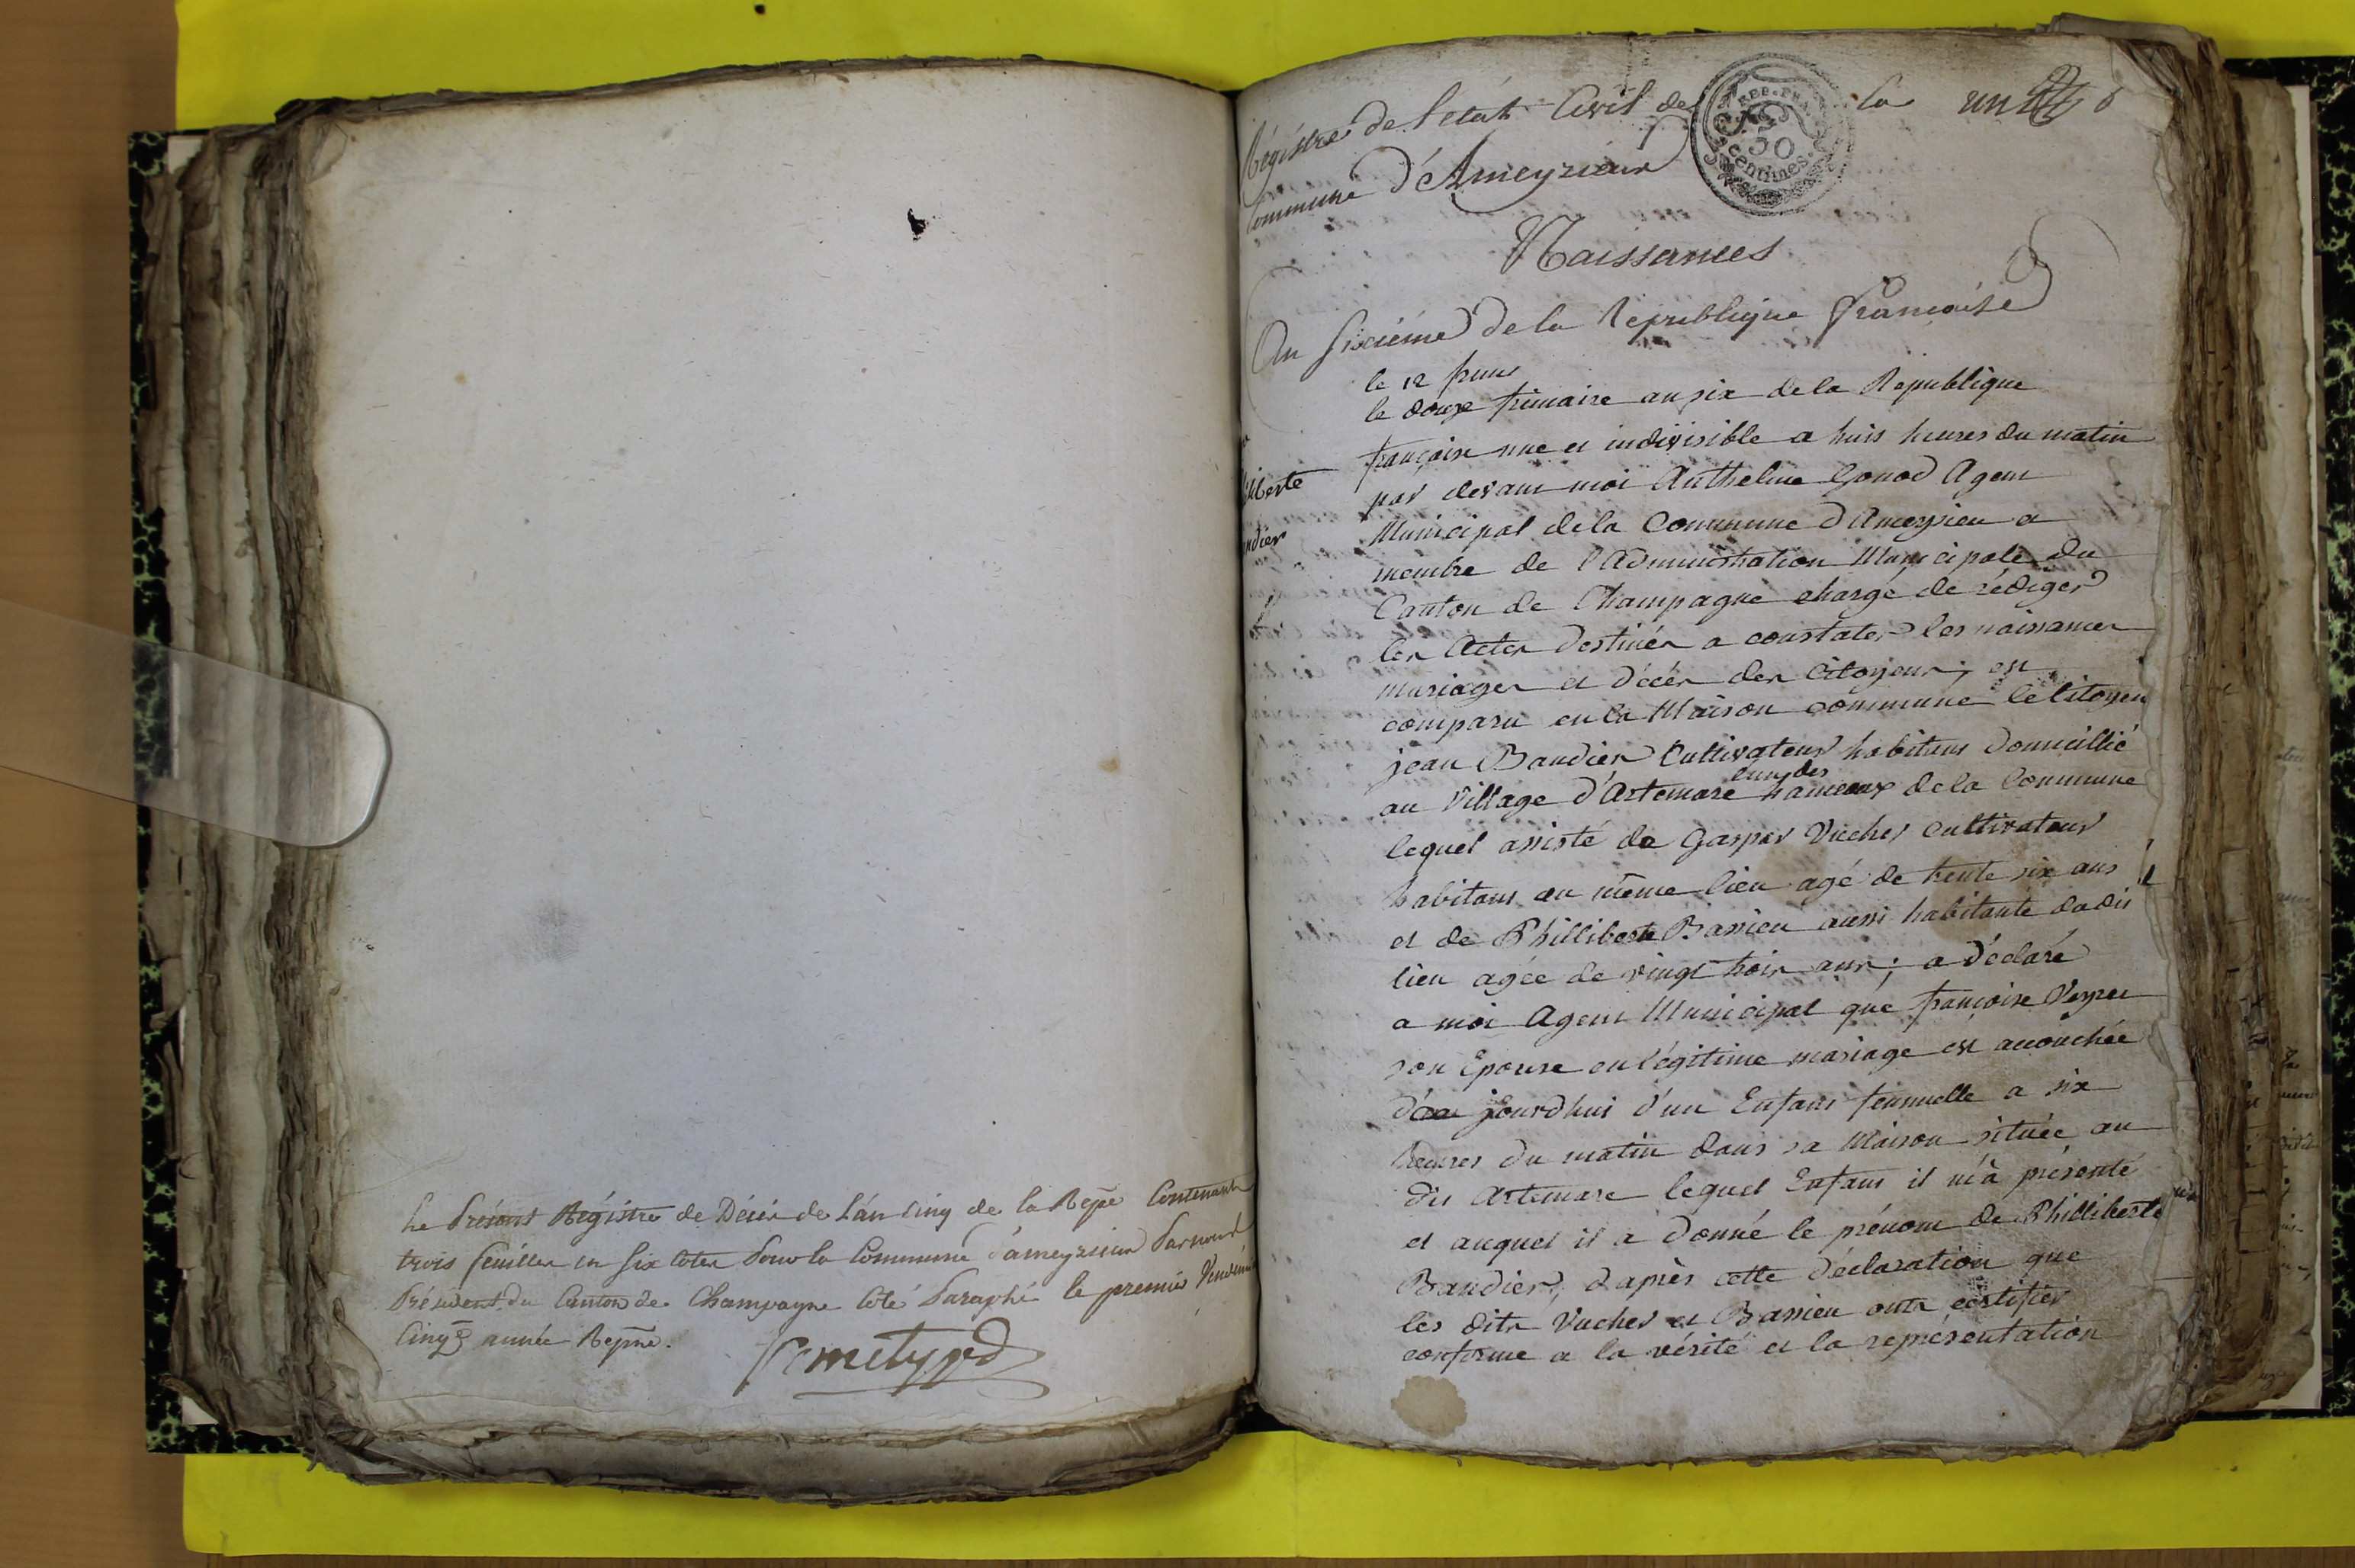 Le Présent Régistre de Décès de L'an Cinq de la Repe Contenant
trois feuilles en six cotes pour la Commune d'ameyzieux Par nous
Président du Canton de Champagne Coté Paraphé le premier Vendémi
Cinqe année Repne.
Régistre de l'état Civil de la
Commune d'Ameyzieux
REP. FRA
50
centimes.
un
Naissances
An sixiéme de la République françoise
le 12 frim
liberte
ndier
le douze frimaire an six de la Republique
françoise une et indivisible a huit heures du matin
par devant moi Anthelme Gonod Agent
Municipal de la Commune d'Ameyzieu a
membre de l'Administration Municipale du
Canton de Champagne chargé de rédiger
les Actes destinés a constater les naissances
mariages et décés des Citoyens; est
comparu en la Maison commune le Citoyen
jean Baudier Cultivateur habitant domicillié
au Village d'Artemare l'un des hameaux de la Commune
lequel assisté de Gaspar Vucher cultivateur
habitant au même lieu agé de trente six ans
et de Philliberte Bassieu aussi habitante dudit
lieu agée de vingt trois ans; a déclaré
a moi Agent Municipal que françoise
son Epouse en légitime mariage est accouchée
jourdhui d'un Enfant femmelle a six
heures du matin dans sa Maison située au
dit Artemare lequel Enfant il m'a présenté
et auquel il a donné le prénom de Philliberte
Baudier, d'après cette déclaration que
les dits Vucher et Bassieu ont certifier
conforme a la vérité et la représentation